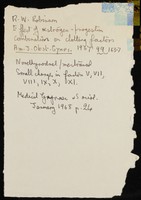 R. W. Robinson
Effect of oestrogen-progestin
combination on clotting factors
Am. J. Obst. Gynec. 1967 99 163-7
Norethynodrel / mestranol
Small change in factors V, VII,
VIII, IX, X, XI.
Medical Gynaec
January 1968 p. 24